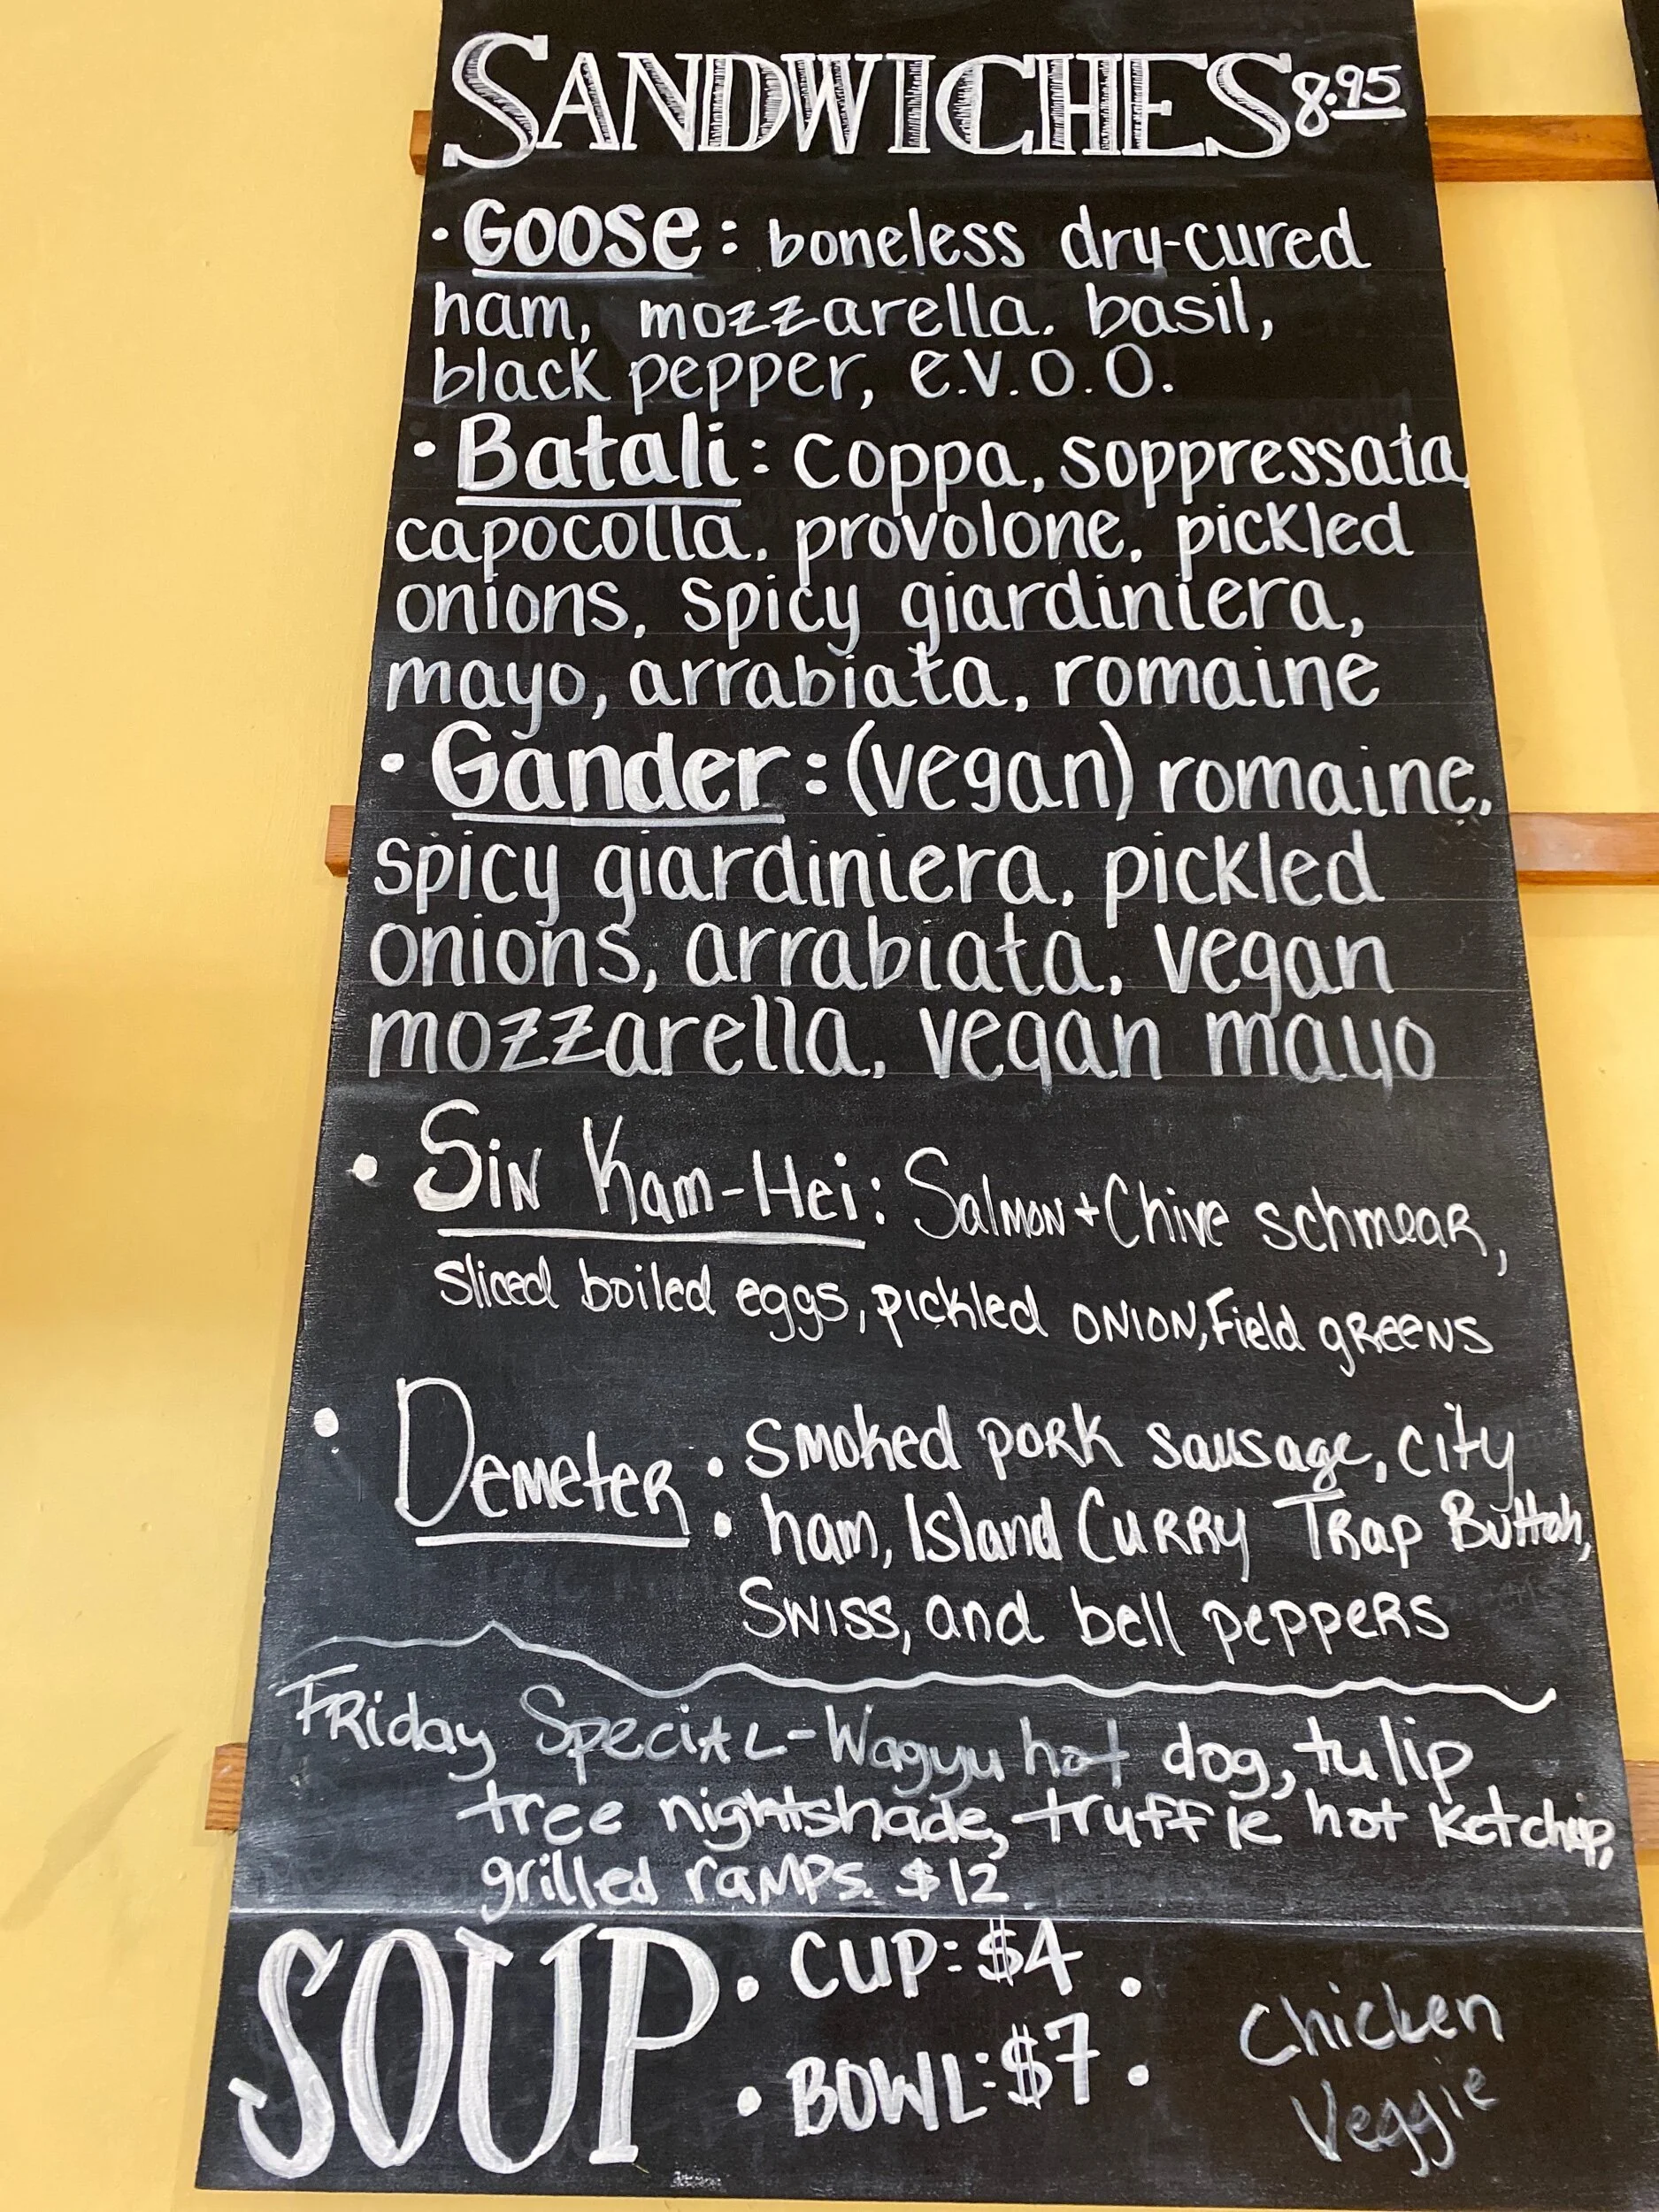 SANDWICHES 8.95
· Goose: boneless dry-cured
ham, mozzarella. basil,
black pepper, e.v.o.o.
· Batali: coppa, soppressata,
capocolla, provolone, pickled
onions, spicy giardiniera,
mayo, arrabiata, romaine
· Gander: (vegan) romaine,
spicy giardiniera, pickled
onions, arrabiata, vegan
mozzarella, vegan mayo
· Sin Kam-Hei: Salmon + Chive schmear,
sliced boiled eggs, pickled onion, Field greens
· Demeter: smoked pork sausage, city
ham, Island Curry Trap Buttah,
Swiss, and bell peppers
Friday Special - Wagyu hot dog, tulip
tree nightshade, truffle hot ketchup,
grilled ramps. $12
SOUP · CUP: $4 ·
· BOWL: $7 ·
Chicken
Veggie